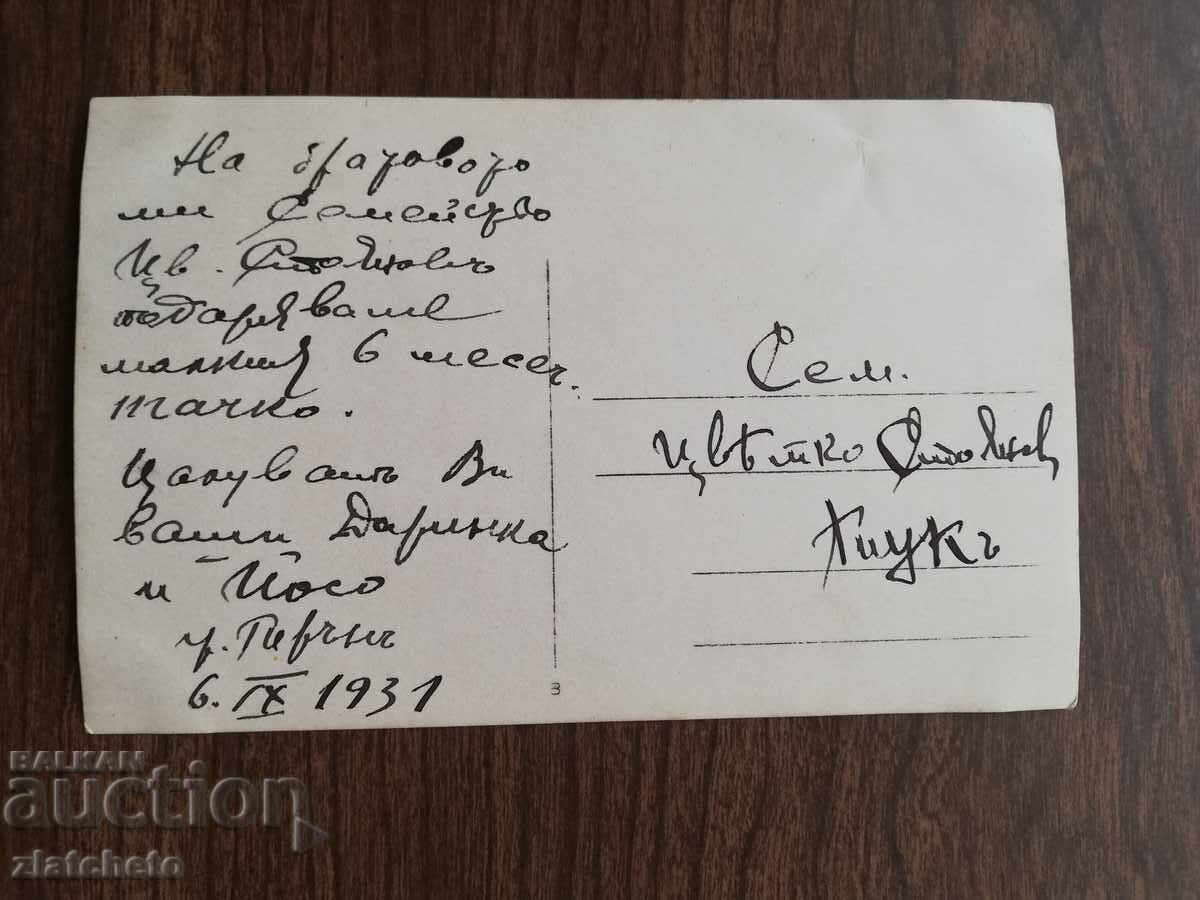 На братовото
ми Семейство
Цв. Стояновъ
подаряваме
малкия 6 месеч.
тачко.
Цалуватъ Ви
ваши Даринка
и Йосо
гр.
6. IX 1931
3
Сем.
Цвѣтко Стоянов
BALKAN
auction
zlatcheto